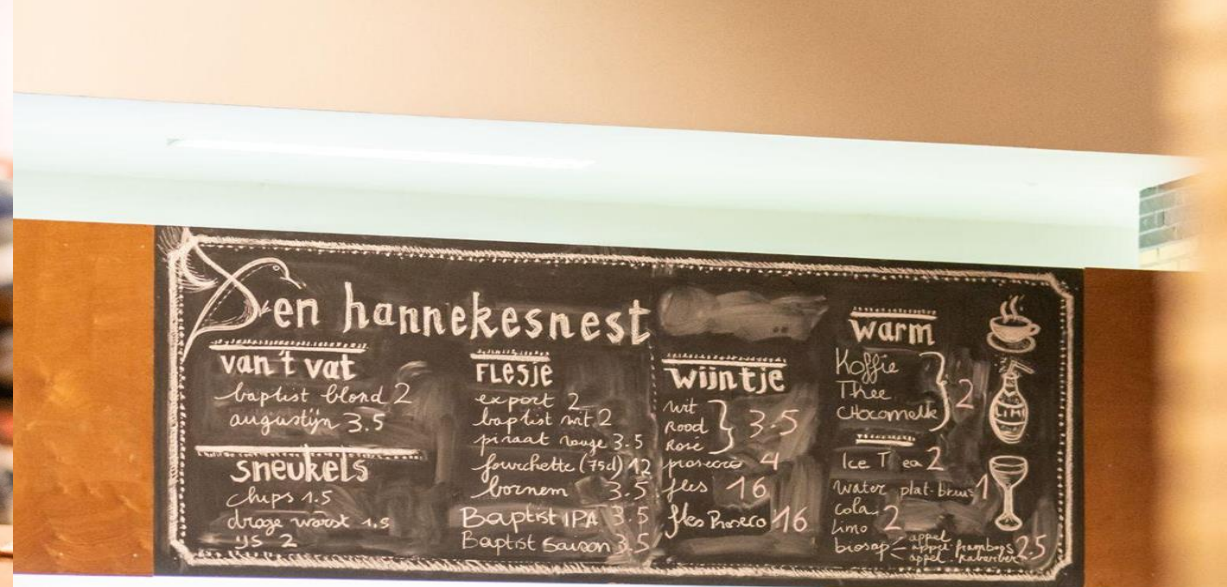 Den hannekesnest
van 't vat
baptist blond 2
augustijn 3.5
sneukels
chips 1.5
droge worst 1.5
ijs 2
FLESJE
export 2
baptist wit 2
piraat rouge 3.5
fourchette (75cl) 12
bornem 3.5
Baptist IPA 3.5
Baptist Saison 3.5
wijntje
wit
Rood
Rosé
3.5
prosecco 4
fles 16
fles Prosecco 16
warm
Koffie
Thee
CHocomelk
2
Ice Tea 2
water plat-bruis 1
cola
limo
2
biosap
appel
appel-framboos
appel-rabarber
2.5
LIMO